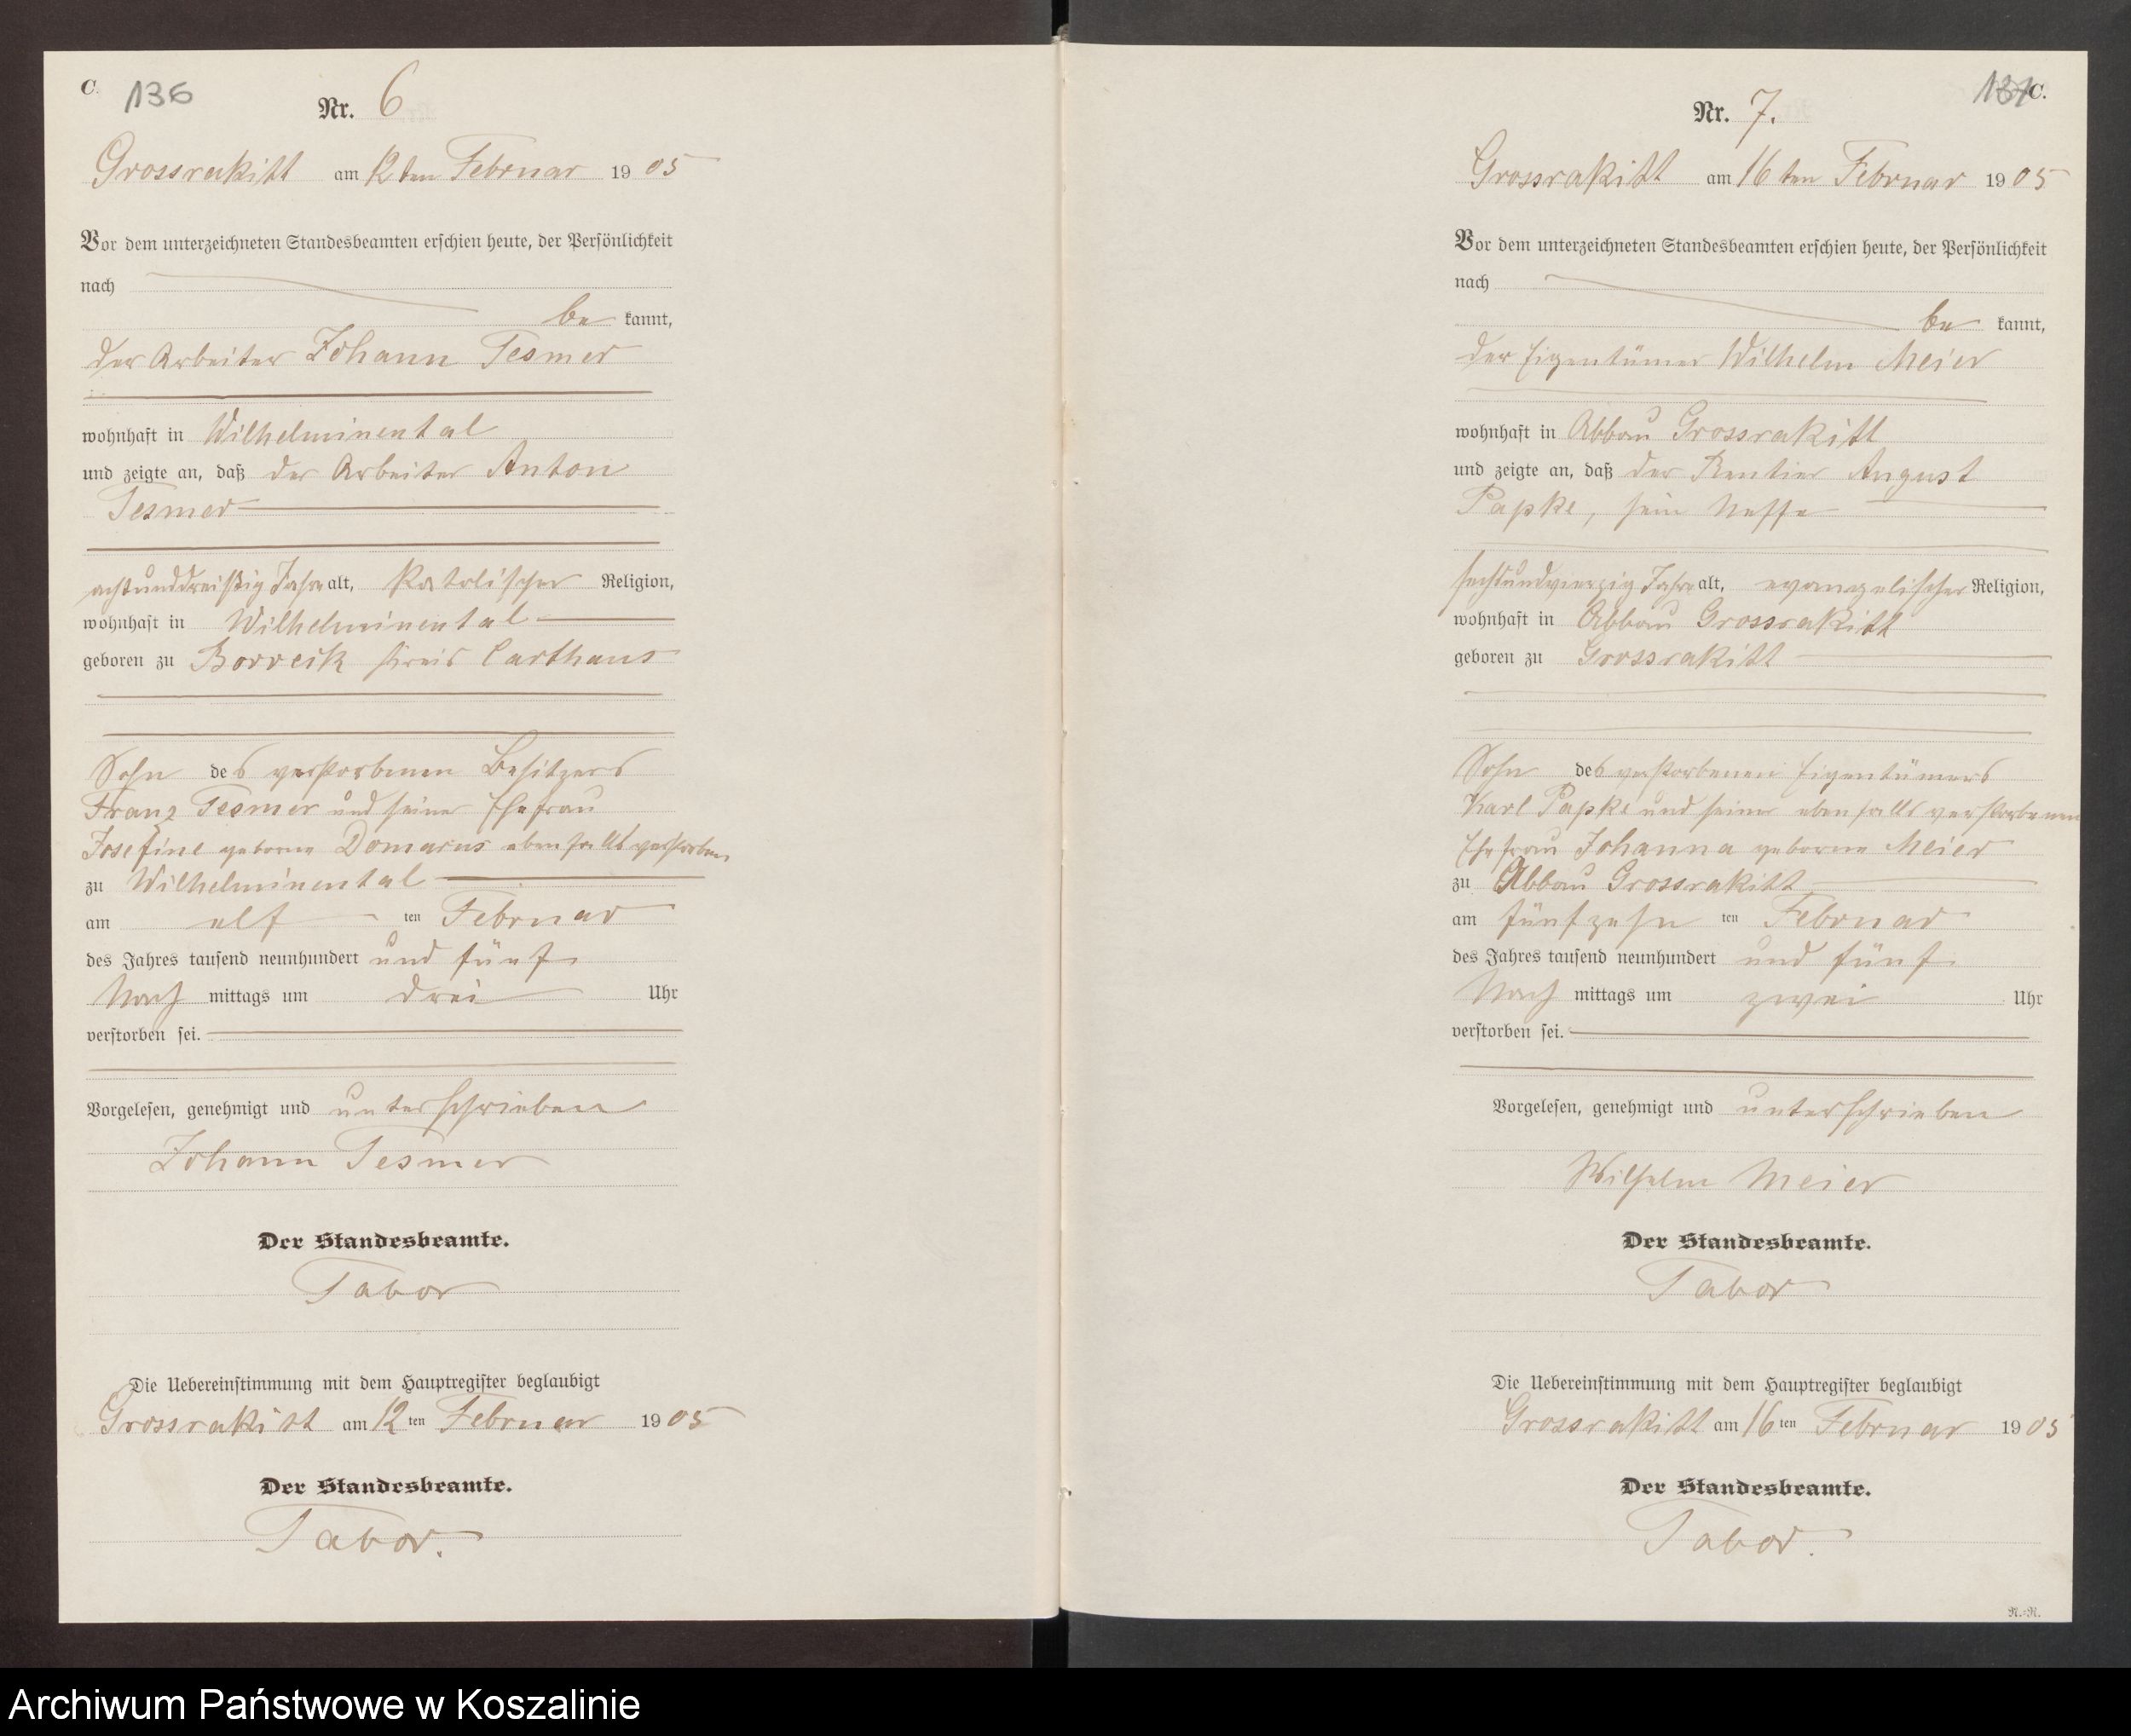 C. 136
Nr. 6
Grossrakitt am 12ten Februar 1905
Vor dem unterzeichneten Standesbeamten erschien heute, der Persönlichkeit
nach
be kannt,
der Arbeiter Johann Tesmer
wohnhaft in Wilhelminental
und zeigte an, daß der Arbeiter Anton
Tesmer
achtunddreißig Jahre alt, katolischer Religion,
wohnhaft in Wilhelminental
geboren zu Borreck Kreis Carthaus
Sohn des verstorbenen Besitzers
Franz Tesmer und seiner Ehefrau
Josefine geborne Domarus ebenfalls verstorben
zu Wilhelminental
am elf ten Februar
des Jahres tausend neunhundert und fünf
Nach mittags um drei Uhr
verstorben sei.
Vorgelesen, genehmigt und unterschrieben
Johann Tesmer
Der Standesbeamte.
Tabor
Die Uebereinstimmung mit dem Hauptregister beglaubigt
Grossrakitt am 12 ten Februar 1905
Der Standesbeamte.
Tabor.
137 C.
Nr. 7.
Grossrakitt am 16ten Februar 1905
Vor dem unterzeichneten Standesbeamten erschien heute, der Persönlichkeit
nach
be kannt,
der Eigentümer Wilhelm Meier
wohnhaft in Abbau Grossrakitt
und zeigte an, daß der Rentier August
Papke, sein Neffe
sechsundvierzig Jahre alt, evangelischer Religion,
wohnhaft in Abbau Grossrakitt
geboren zu Grossrakitt
Sohn des verstorbenen Eigentümers
Karl Papke und seiner ebenfalls verstorbenen
Ehefrau Johanna geborne Meier
zu Abbau Grossrakitt
am fünfzehn ten Februar
des Jahres tausend neunhundert und fünf
Nach mittags um zwei Uhr
verstorben sei.
Vorgelesen, genehmigt und unterschrieben
Wilhelm Meier
Der Standesbeamte.
Tabor
Die Uebereinstimmung mit dem Hauptregister beglaubigt
Grossrakitt am 16 ten Februar 1905
Der Standesbeamte.
Tabor.
N.=N.
Archiwum Państwowe w Koszalinie